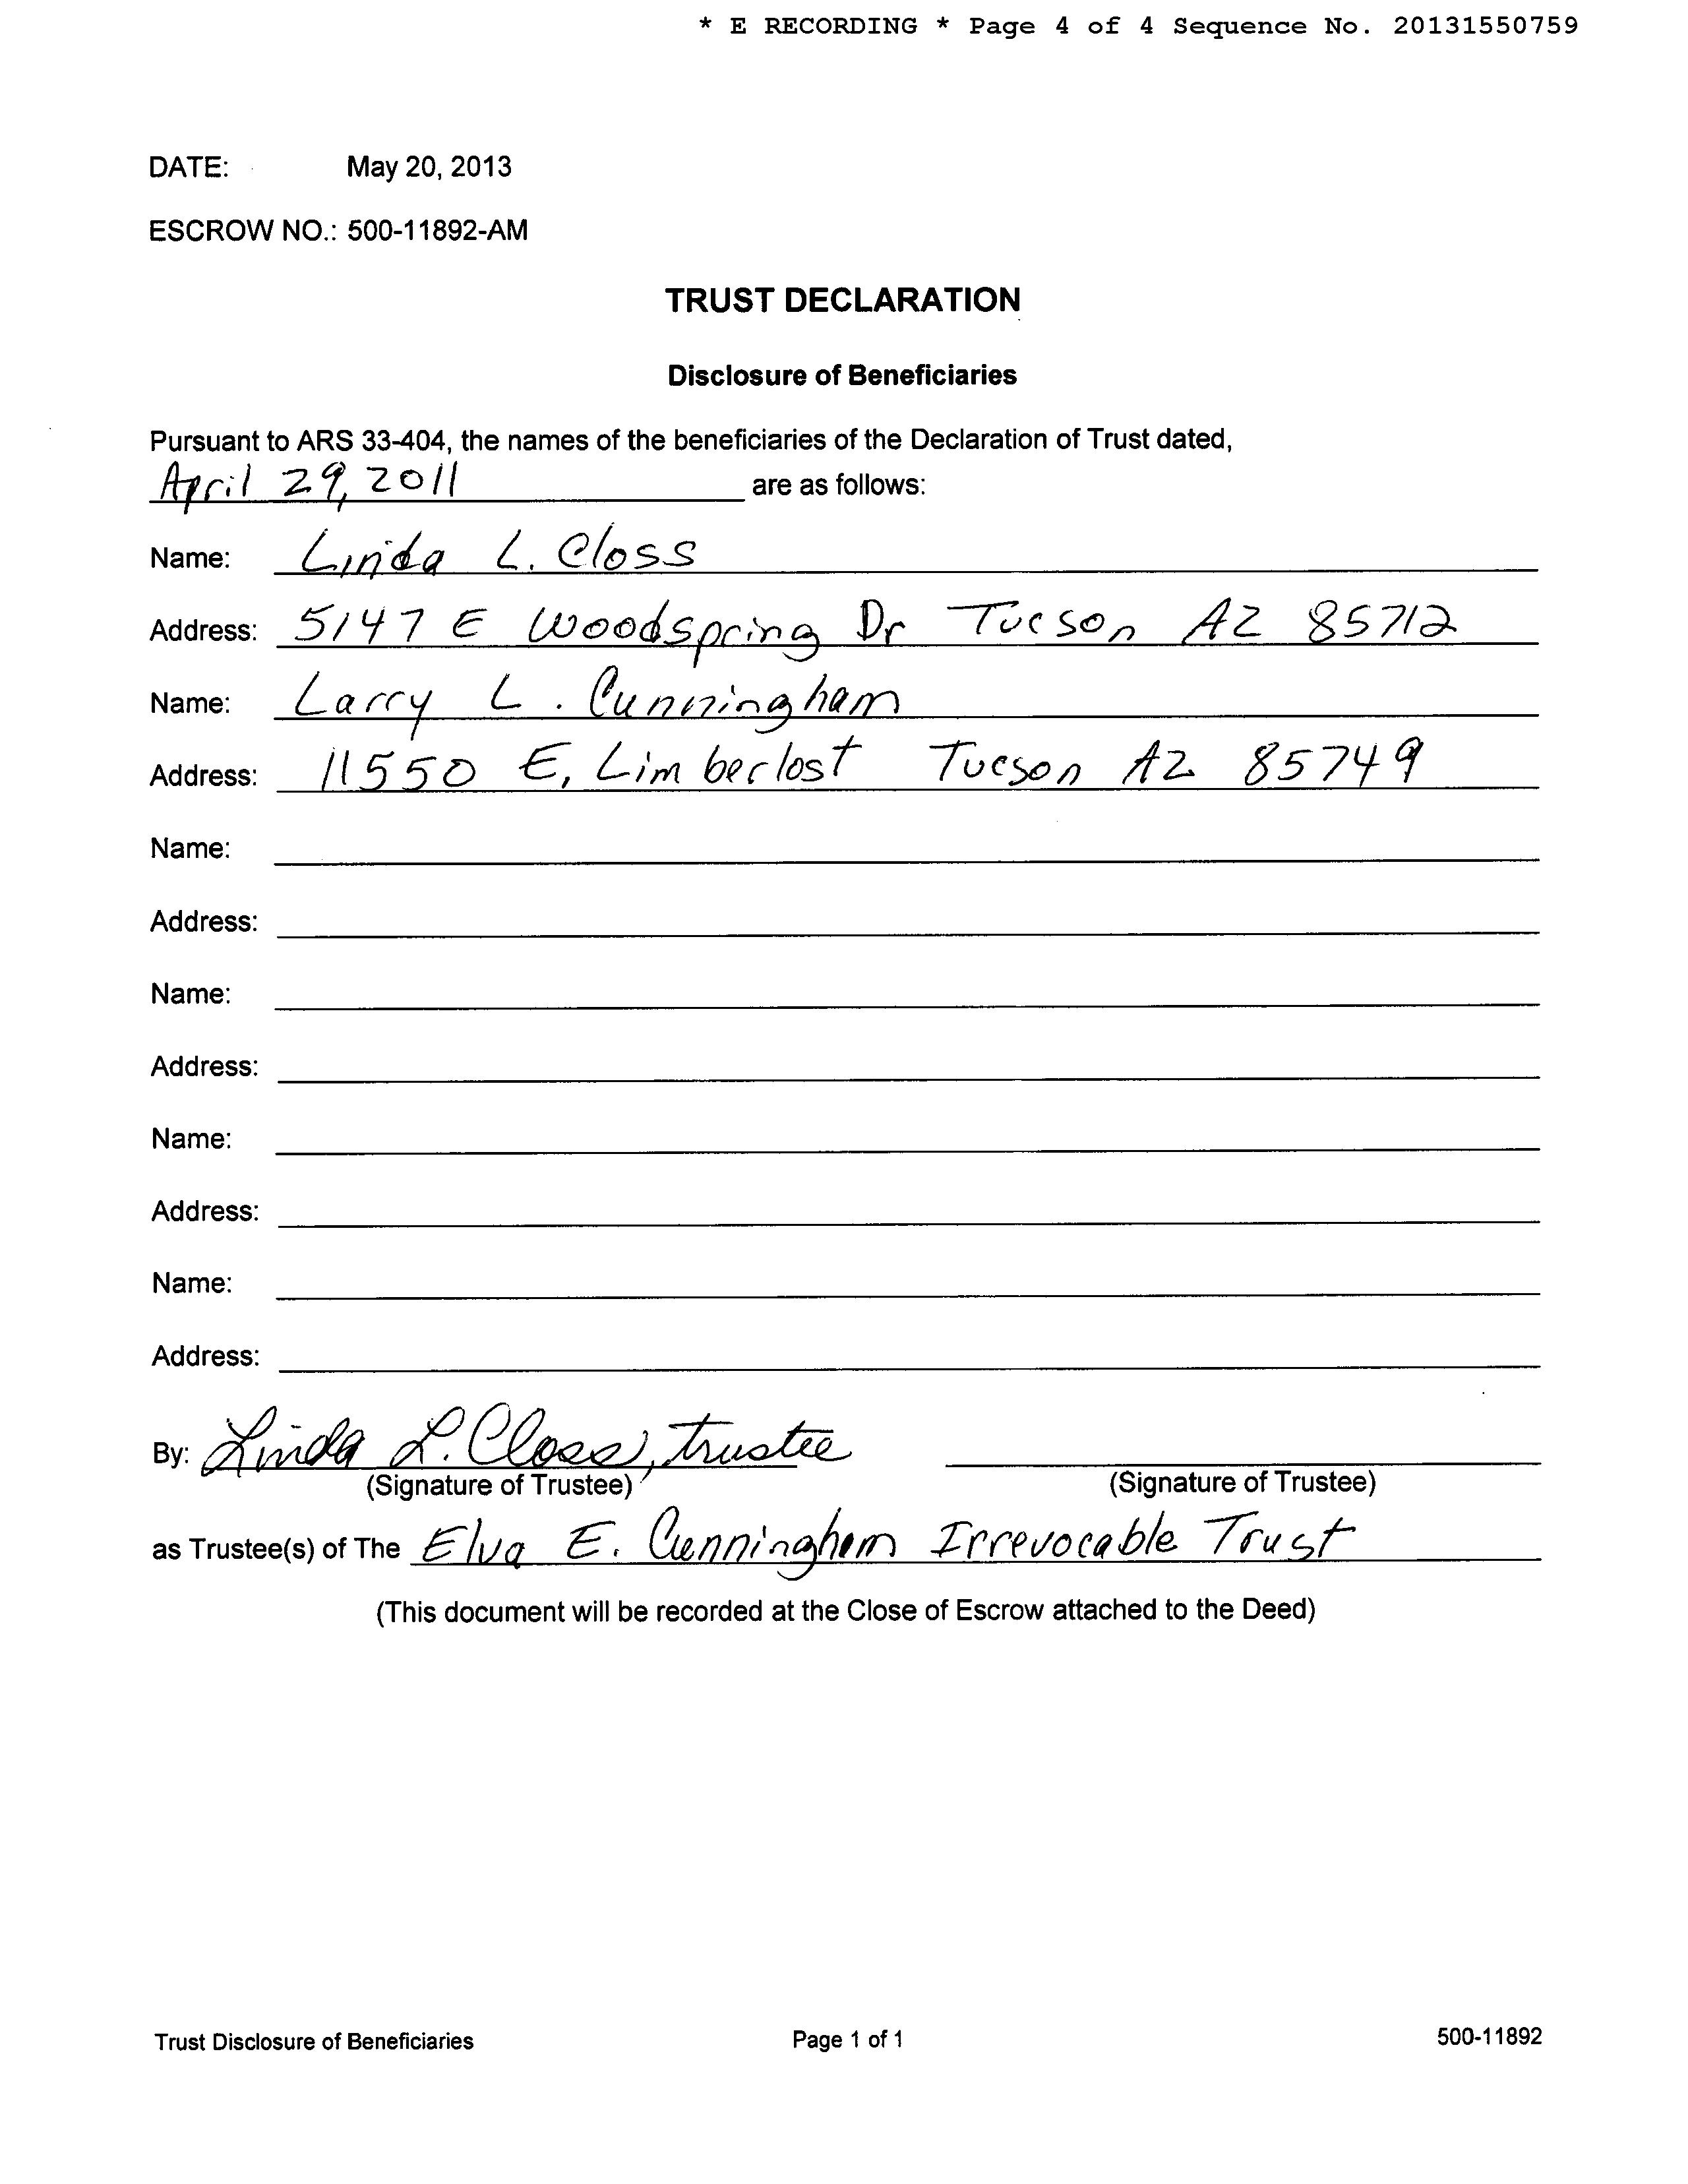 * E RECORDING * Page 4 of 4 Sequence No. 20131550759
DATE: May 20, 2013
ESCROW NO.: 500-11892-AM
TRUST DECLARATION
Disclosure of Beneficiaries
Pursuant to ARS 33-404, the names of the beneficiaries of the Declaration of Trust dated,
April 29, 2011 are as follows:
Name: Linda L. Closs
Address: 5147 E Woodspring Dr Tucson AZ 85712
Name: Larry L. Cunningham
Address: 11550 E, Limberlost Tucson AZ 85749
Name:
Address:
Name:
Address:
Name:
Address:
Name:
Address:
By: Linda L. Closs, trustee
(Signature of Trustee) (Signature of Trustee)
as Trustee(s) of The Elva E. Cunningham Irrevocable Trust
(This document will be recorded at the Close of Escrow attached to the Deed)
Trust Disclosure of Beneficiaries Page 1 of 1 500-11892